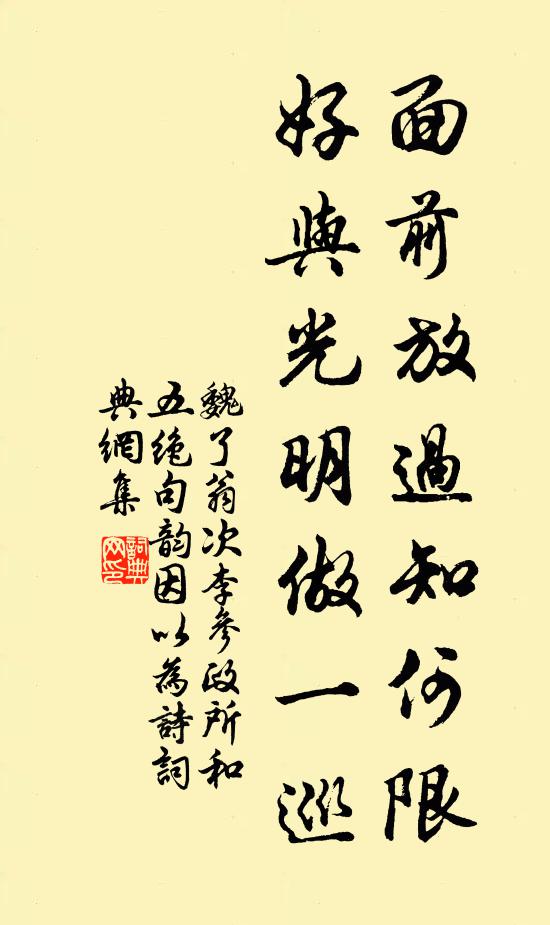 面前放過知何限
好與光明做一巡
魏了翁次李參政所和
五絕句韵因以為詩詞
典網集
詞典網印